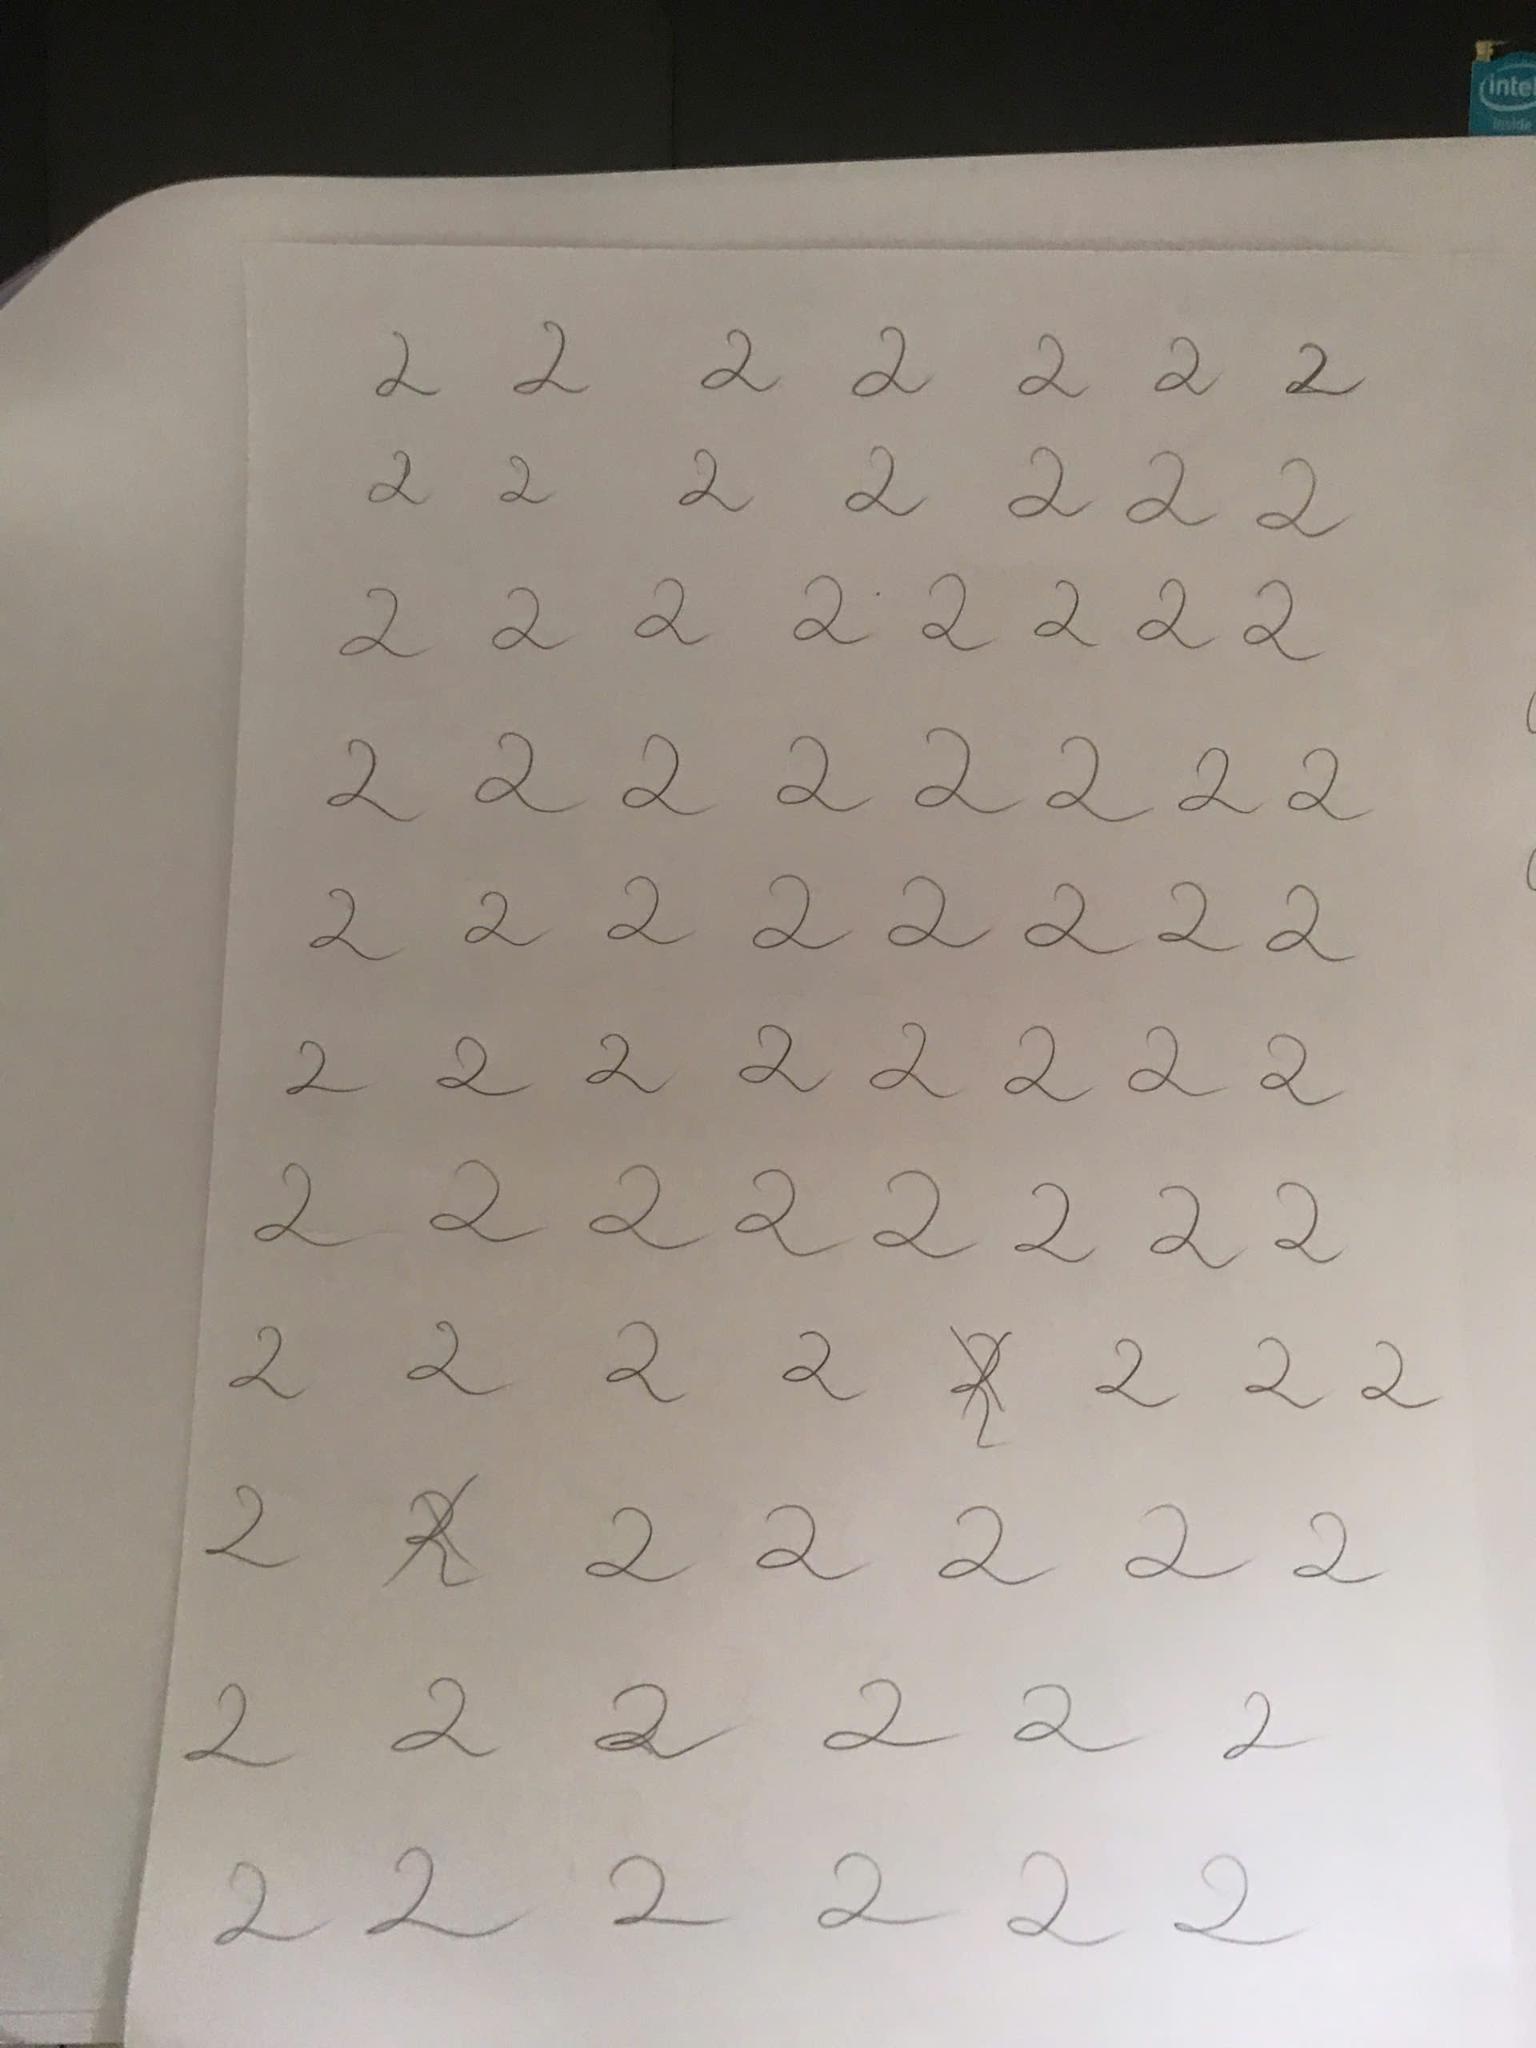 intel
inside
2 2 2 2 2 2 2
2 2 2 2 2 2 2
2 2 2 2 2 2 2 2
2 2 2 2 2 2 2 2
2 2 2 2 2 2 2 2
2 2 2 2 2 2 2 2
2 2 2 2 2 2 2 2
2 2 2 2 2 2 2
2 2 2 2 2 2
2 2 2 2 2 2
2 2 2 2 2 2